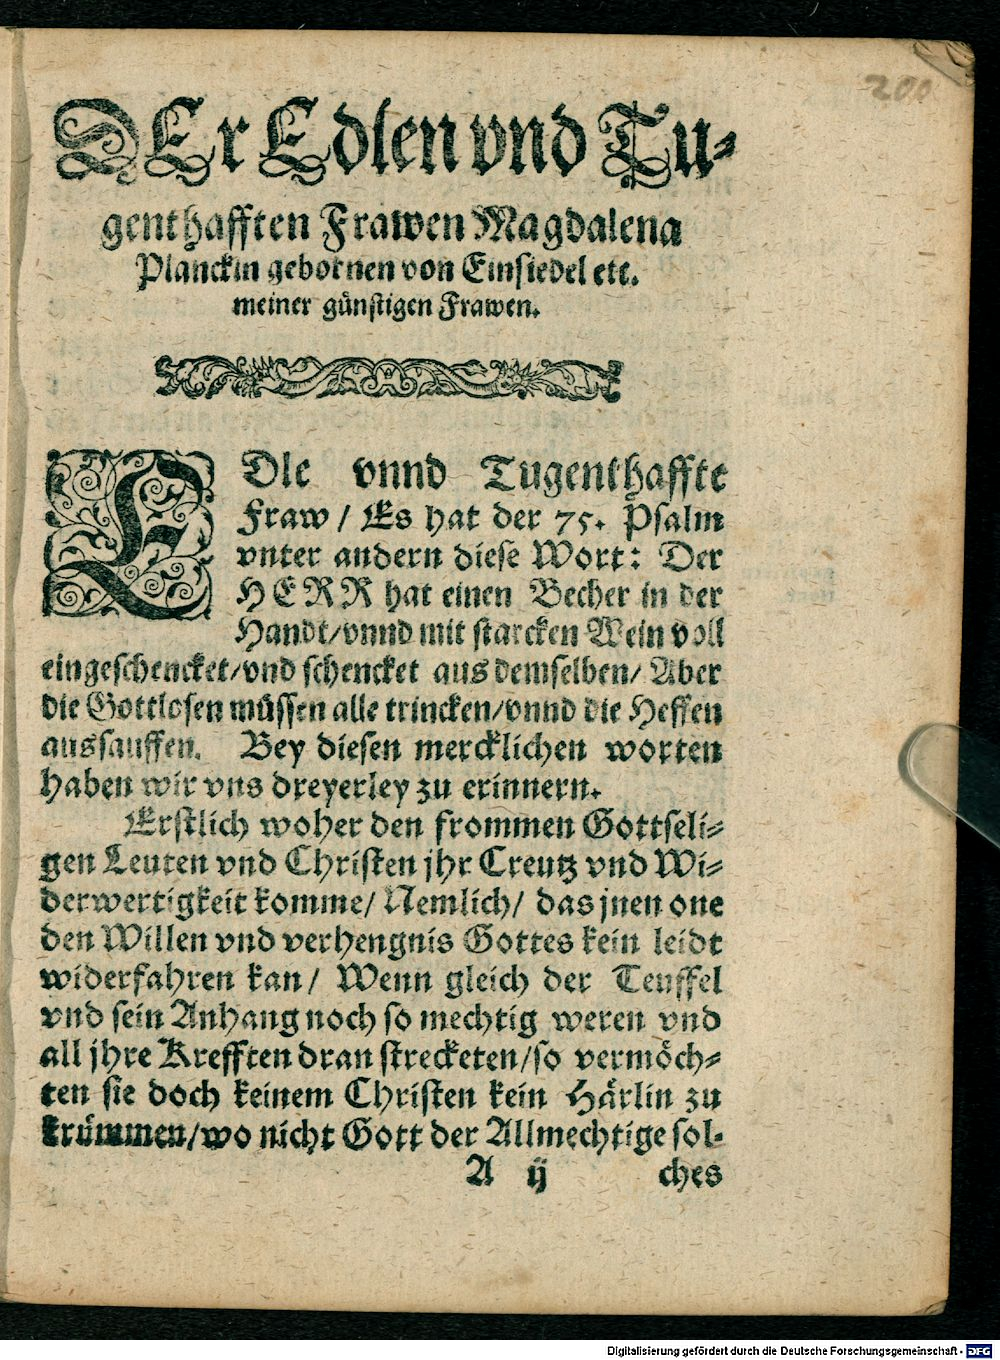 200
DEr Edlen vnd Tu-
genthafften Frawen Magdalena
Planckin gebornen von Einsiedel etc.
meiner günstigen Frawen.
EDle vnnd Tugenthaffte
Fraw / Es hat der 75. Psalm
vnter andern diese Wort: Der
HERR hat einen Becher in der
Handt/vnnd mit starcken Wein voll
eingeschencket/vnd schencket aus demselben/ Aber
die Gottlosen müssen alle trincken/vnnd die Heffen
aussauffen. Bey diesen mercklichen worten
haben wir vns dreyerley zu erinnern.
Erstlich woher den frommen Gottseli-
gen Leuten vnd Christen jhr Creutz vnd Wi-
derwertigkeit komme/ Nemlich/ das jnen one
den Willen vnd verhengnis Gottes kein leidt
widerfahren kan/ Wenn gleich der Teuffel
vnd sein Anhang noch so mechtig weren vnd
all jhre Krefften dran strecketen/so vermöch-
ten sie doch keinem Christen kein Härlin zu
krümmen/wo nicht Gott der Allmechtige sol-
A ij ches
Digitalisierung gefördert durch die Deutsche Forschungsgemeinschaft - DFG